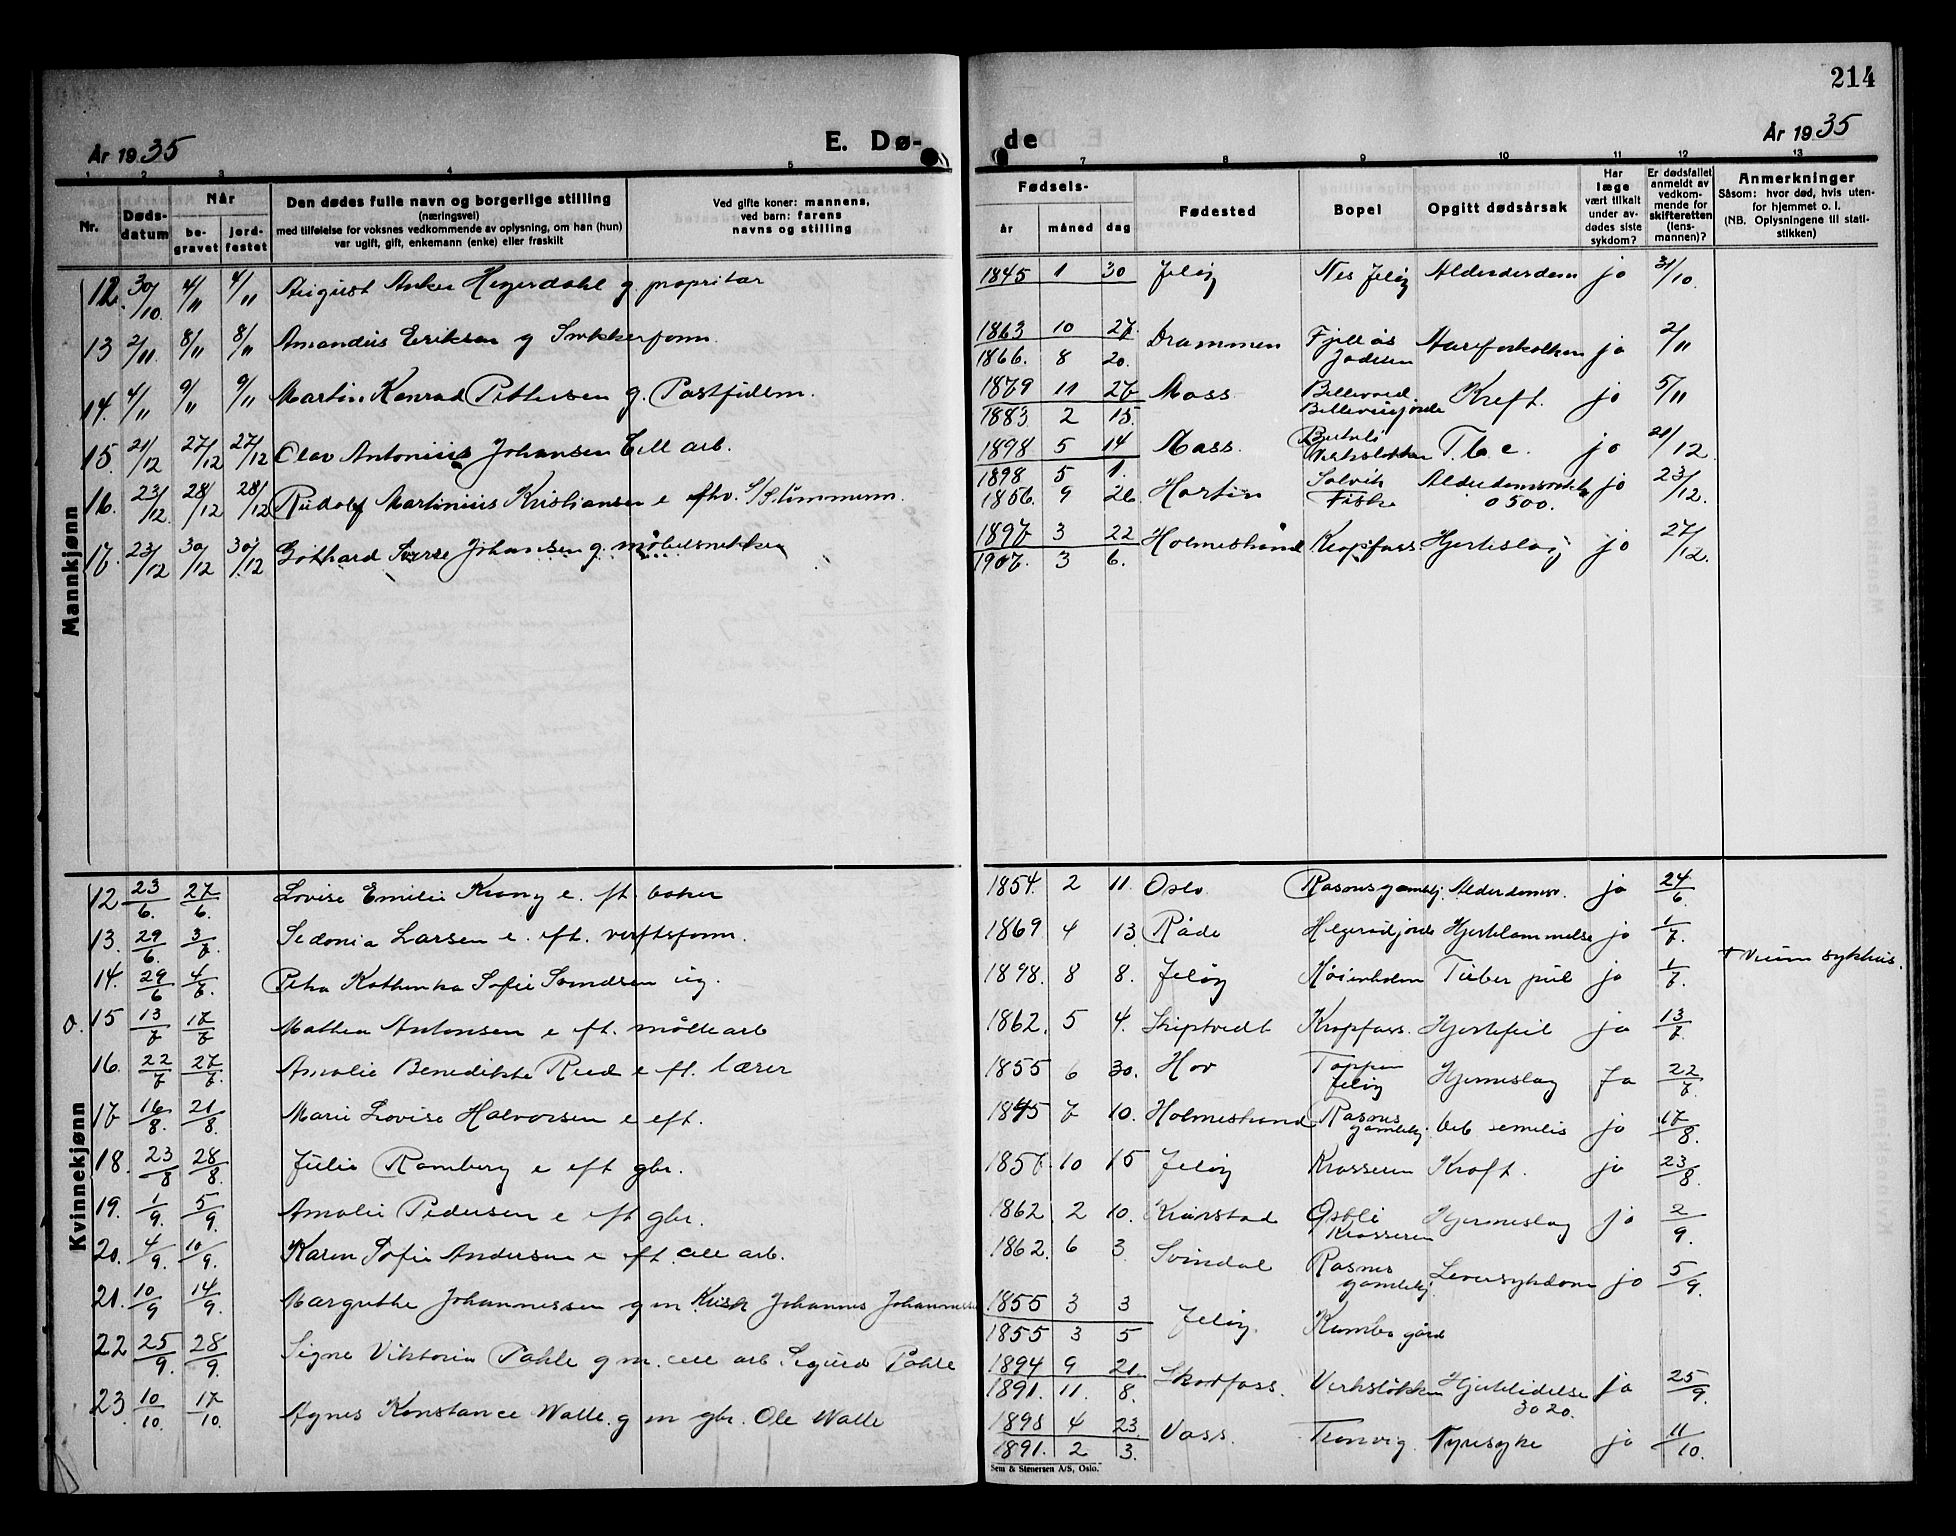 214
År 1935
E. Dø-
de
År 1935
1 2 3 4 5 7 8 9 10 11 12 13
Nr.
Døds-
datum
Når
be-
gravet
jord-
festet
Den dødes fulle navn og borgerlige stilling
(næringsvei)
med tilføielse for voksnes vedkommende av oplysning, om han (hun)
var ugift, gift, enkemann (enke) eller fraskilt
Ved gifte koner: mannens,
ved barn: farens
navns og stilling
Fødsels-
år måned dag
Fødested
Bopel
Opgitt dødsårsak
Har
læge
vært tilkalt
under av-
dødes siste
sykdom?
Er dødsfallet
anmeldt av
vedkom-
mende for
skifteretten
(lens-
mannen)?
Anmerkninger
Såsom: hvor død, hvis uten-
for hjemmet o. l.
(NB. Oplysningene til stati-
stikken)
Mannkjønn
12. 30/10 4/11 4/11 August Anker Hegerdahl g propritær 1845 1 30 Jeløy Nes Jeløy Alderderdom ja 31/10.
13 2/11 8/11 8/11 Amandus Eriksen g Snekkerform. 1863 10 27. Drammen Fjellås ja 2/11
1866. 8 20.
14. 4/11 9/11 9/11 Martin Konrad Pettersen g. Postfullm. 1879 11 27 Moss Kreft. ja 5/11
1883 2 15.
15. 21/12 27/12 27/12 Olav Antonius Johansen Cell arb. 1898 5 14 Moss. Verksløkken T.b.c. ja 21/12
1898 5 1.
16. 23/12. 28/12 28/12 Rudolf Martinius Kristiansen e fhv. S/S tømmerm. 1856. 9 26. Solvik Fiske 0500. ja 23/12.
17. 23/12 30/12 30/12 Gothard Sverre Johansen g. møbelsnekker 1897 3 22 Holmestrand Kropfoss. Hjerteslag ja 27/12.
1907. 3 6.
Kvinnekjønn
12 23/6. 27/6. Lovise Emilie Krang e. eft. baker 1854. 2 11. Oslo. Rosnes gamlehj. Alderdomsv. ja 24/6.
13. 29/6. 3/7. Sedonia Larsen e. eft. verftsform. 1869 4 13. Råde Hjertelammelse ja 1/7.
14. 29/6 4/7. Petra Kathinka Sofie Svendsen ug. 1898. 8 8. Jeløy Høienholm Tuber pul ja 1/7. + Veum sykhus.
o. 15 13/7 17/7 Mathea Antonsen e eft. mølle arb 1862. 5 4. Skiptvedt Kropfoss. Hjertefeil ja 13/7.
16. 22/7 27/7. Amalie Benedikte Rud e eft. lærer 1855 6 30. Hov Toppen Jeløy Hjerneslag Ja 22/7
17 16/8. 21/8. Marie Lovise Halvorsen e eft. 1845 7 10. Holmestrand Rosnes gamlehj. deb senilis ja 17/8.
18. 23/8 28/8. Julie Ramberg e eft gbr. 1857. 10 15 Jeløy Krosseren Kreft. ja 23/8.
19. 1/9. 5/9. Amalie Pedersen e eft gbr. 1862 2 10. Krosseren Hjerneslag ja 2/9.
20. 4/9. 10/9. Karen Sofie Andersen e eft. cell arb. 1862. 6 3. Svindal Rosnes gamlehj. Leversykdom ja 5/9.
21. 10/9 14/9. Margrethe Johannessen g m Kirsk Johannes Johannessen 1855 3 3 Jeløy. Kambo gård
1855 3 5
22 25/9. 28/9. Signe Viktoria Pahle g m. cell arb Sigurd Pahle 1894 9 21. Skotfoss. Verksløkken Hjertelidelse 3020. ja 25/9.
1891. 11. 8.
23. 10/10. 17/10. Agnes Konstance Walle. g m gbr. Ole Walle 1898 4 23. Voss. Tronvig. Nyresyke ja 11/10.
1891. 2 3.
Sem & Stenersen A/S, Oslo.